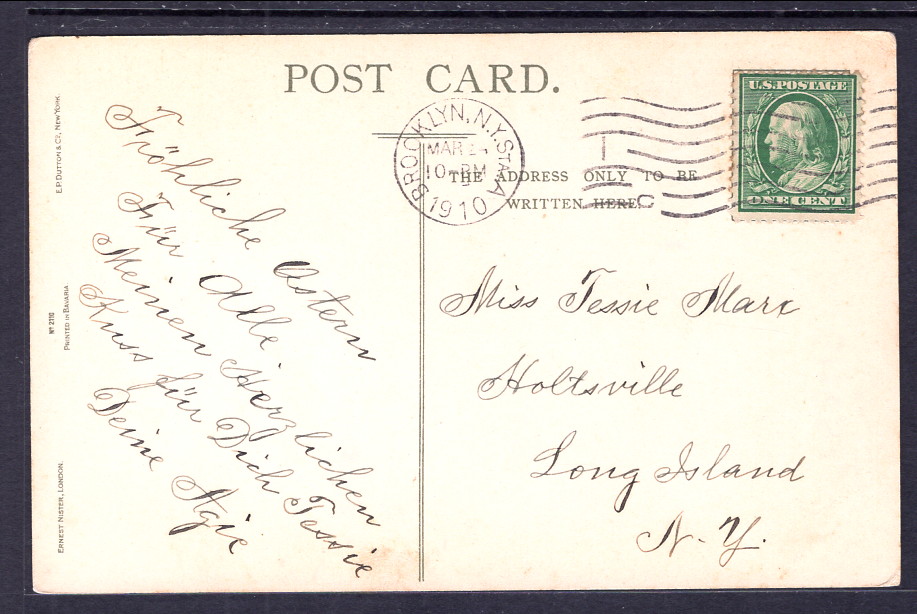 POST CARD.
THE ADDRESS ONLY TO BE
WRITTEN HERE.
BROOKLYN, N.Y. STA. A
MAR
10 PM
1910
U.S. POSTAGE
ONE CENT
E.P. DUTTON & Co, NEW YORK.
No 2110
PRINTED IN BAVARIA
ERNEST NISTER, LONDON.
Fröhliche Ostern
Für Alle.
Meinen Herzlichen
Kuss für Dich Tessie
Deine Agie
Miss Tessie Marx
Holtsville
Long Island
N. Y.